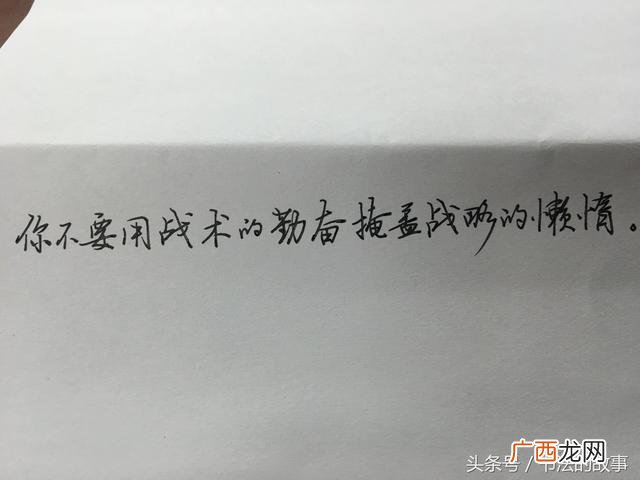 你不要用战术的勤奋掩盖战略的懒惰。
广西龙网
头条号/书法的故事